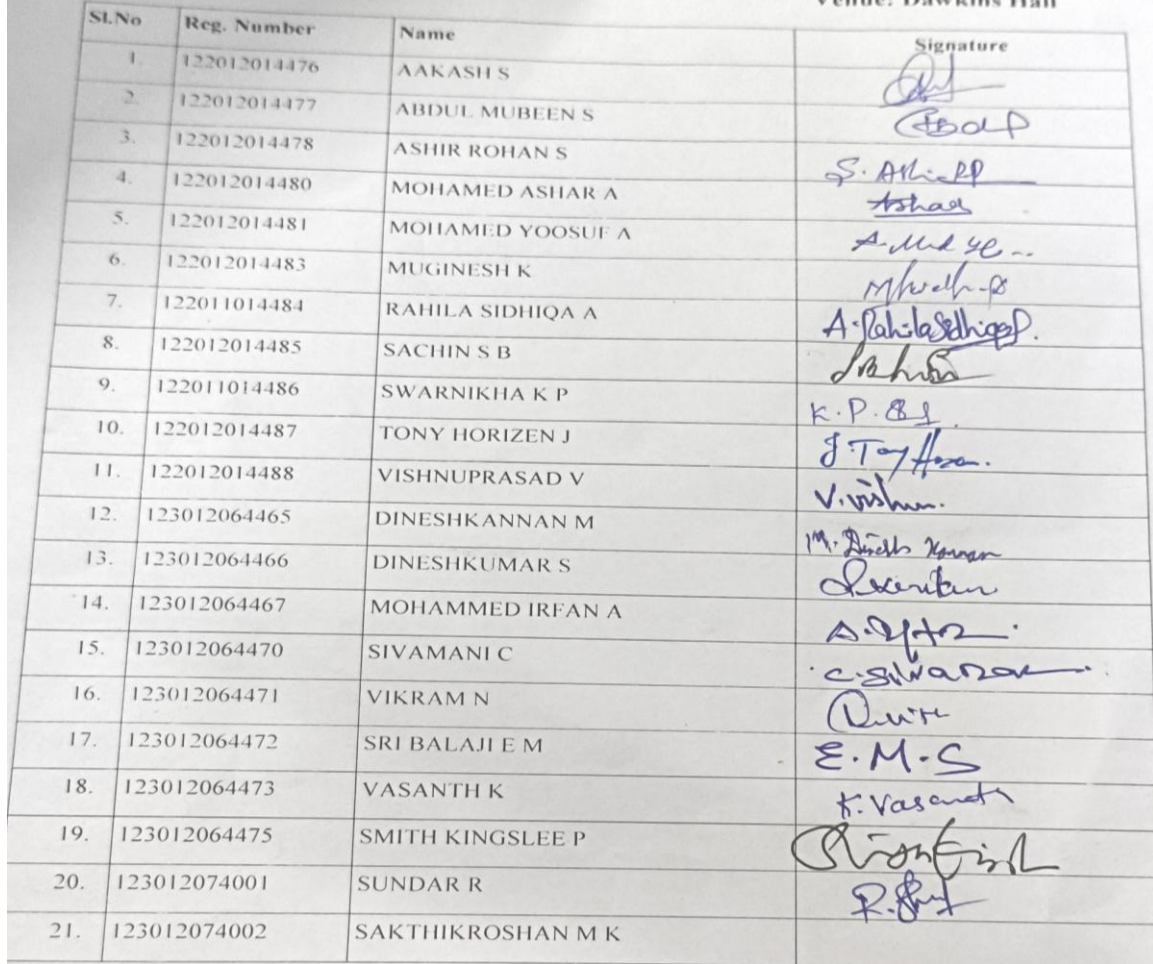 Venue: Dawkins Hall
Sl.No Reg. Number Name Signature
1. 122012014476 AAKASH S
2. 122012014477 ABDUL MUBEEN S
3. 122012014478 ASHIR ROHAN S
4. 122012014480 MOHAMED ASHAR A Ashar
5. 122012014481 MOHAMED YOOSUF A
6. 122012014483 MUGINESH K
7. 122011014484 RAHILA SIDHIQA A A. Rahila Sidhiqa
8. 122012014485 SACHIN S B
9. 122011014486 SWARNIKHA K P K.P.
10. 122012014487 TONY HORIZEN J J. Tony
11. 122012014488 VISHNUPRASAD V V. Vishnu.
12. 123012064465 DINESHKANNAN M M. Dinesh Kannan
13. 123012064466 DINESHKUMAR S
14. 123012064467 MOHAMMED IRFAN A
15. 123012064470 SIVAMANI C
16. 123012064471 VIKRAM N
17. 123012064472 SRI BALAJI E M E.M.S
18. 123012064473 VASANTH K K. Vasanth
19. 123012064475 SMITH KINGSLEE P
20. 123012074001 SUNDAR R
21. 123012074002 SAKTHIKROSHAN M K